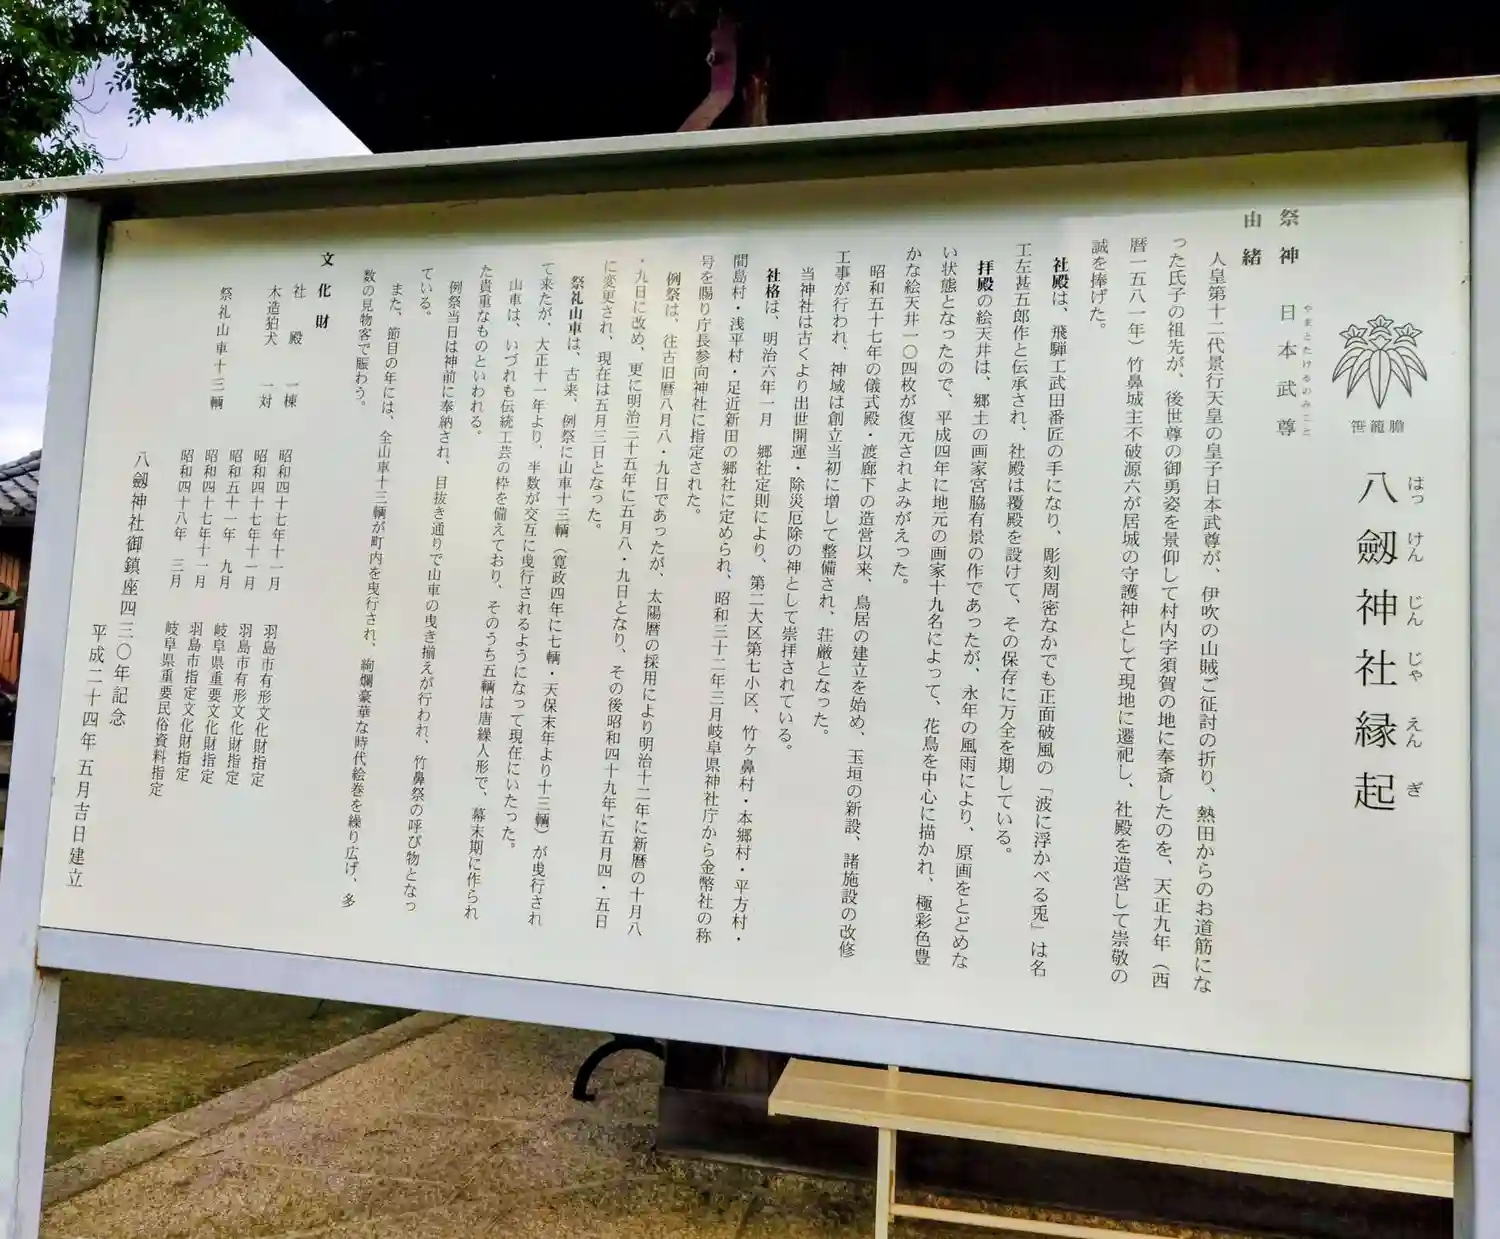 笹龍膽
八劔神社縁起
はっけんじんじゃえんぎ
祭神 日本武尊
やまとたけるのみこと
由緒
人皇第十二代景行天皇の皇子日本武尊が、伊吹の山賊ご征討の折り、熱田からのお道筋にな
った氏子の祖先が、後世尊の御勇姿を景仰して村内字須賀の地に奉斎したのを、天正九年(西
暦一五八一年)竹鼻城主不破源六が居城の守護神として現地に遷祀し、社殿を造営して崇敬の
誠を捧げた。
社殿は、飛騨工武田番匠の手になり、彫刻周密なかでも正面破風の「波に浮かべる兎」は名
工左甚五郎作と伝承され、社殿は覆殿を設けて、その保存に万全を期している。
拝殿の絵天井は、郷土の画家宮脇有景の作であったが、永年の風雨により、原画をとどめな
い状態となったので、平成四年に地元の画家十九名によって、花鳥を中心に描かれ、極彩色豊
かな絵天井一〇四枚が復元されよみがえった。
昭和五十七年の儀式殿・渡廊下の造営以来、鳥居の建立を始め、玉垣の新設、諸施設の改修
工事が行われ、神域は創立当初に増して整備され、荘厳となった。
当神社は古くより出世開運・除災厄除の神として崇拝されている。
社格は、明治六年一月 郷社定則により、第二大区第七小区、竹ヶ鼻村・本郷村・平方村・
間島村・浅平村・足近新田の郷社に定められ、昭和三十二年三月岐阜県神社庁から金幣社の称
号を賜り庁長参向神社に指定された。
例祭は、往古旧暦八月八・九日であったが、太陽暦の採用により明治十二年に新暦の十月八
・九日に改め、更に明治三十五年に五月八・九日となり、その後昭和四十九年に五月四・五日
に変更され、現在は五月三日となった。
祭礼山車は、古来、例祭に山車十三輌(寛政四年に七輌・天保末年より十三輌)が曳行され
て来たが、大正十一年より、半数が交互に曳行されるようになって現在にいたった。
山車は、いづれも伝統工芸の枠を備えており、そのうち五輌は唐繰人形で、幕末期に作られ
た貴重なものといわれる。
例祭当日は神前に奉納され、目抜き通りで山車の曳き揃えが行われ、竹鼻祭の呼び物となっ
ている。
また、節目の年には、全山車十三輌が町内を曳行され、絢爛豪華な時代絵巻を繰り広げ、多
数の見物客で賑わう。
文化財
社殿 一棟 昭和四十七年十一月 羽島市有形文化財指定
木造狛犬 一対 昭和四十七年十一月 羽島市有形文化財指定
昭和五十一年 九月 岐阜県重要文化財指定
祭礼山車十三輌 昭和四十七年十一月 羽島市指定文化財指定
昭和四十八年 三月 岐阜県重要民俗資料指定
八劔神社御鎮座四三〇年記念
平成二十四年五月吉日建立